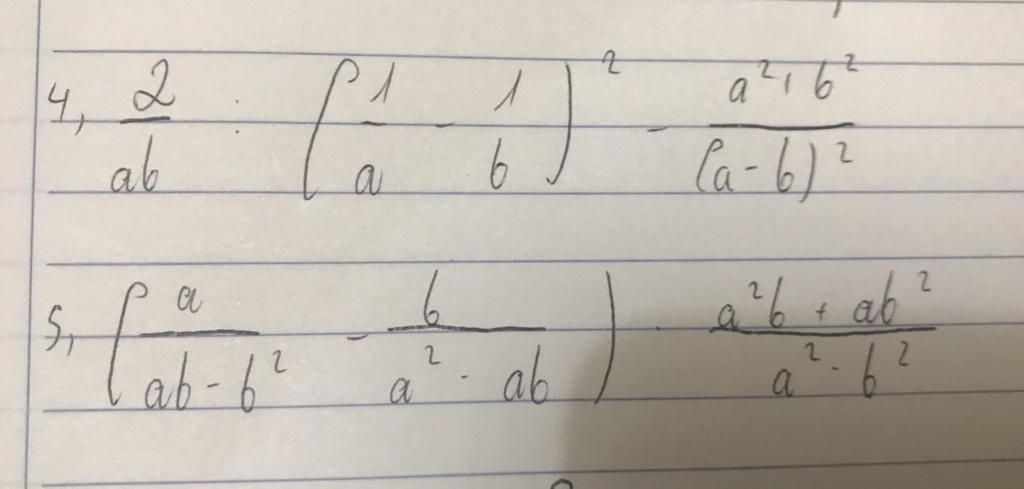 4, 2/ab : (1/a - 1/b)² - a²+b²/(a-b)²
5, (a/ab-b² - b/a²-ab) · a²b+ab²/a²-b²